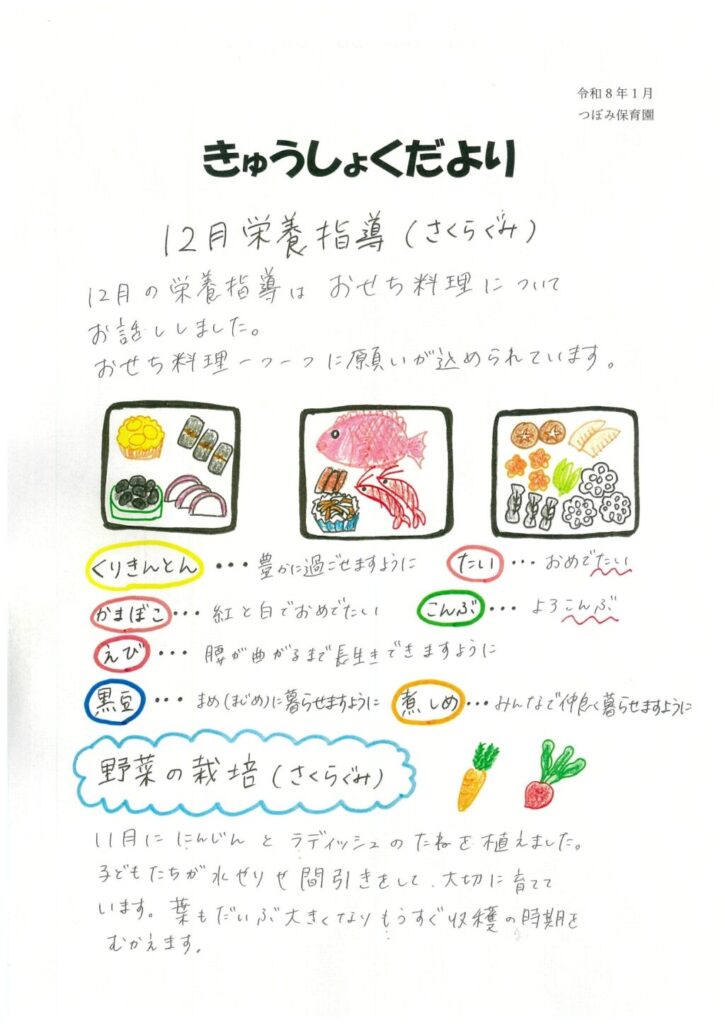 令和8年1月
つぼみ保育園
きゅうしょくだより
12月栄養指導(さくらぐみ)
12月の栄養指導は おせち料理について
お話ししました。
おせち料理一つ一つに願いが込められています。
くりきんとん ・・・ 豊かに過ごせますように
たい ・・・ おめでたい
かまぼこ ・・・ 紅と白でおめでたい
こんぶ ・・・ よろこんぶ
えび ・・・ 腰が曲がるまで長生きできますように
黒豆 ・・・ まめ(まじめ)に暮らせますように
煮しめ ・・・ みんなで仲良く暮らせますように
野菜の栽培(さくらぐみ)
11月に にんじん と ラディッシュのたねを植えました。
子どもたちが水やりや間引きをして、大切に育てて
います。葉もだいぶ大きくなりもうすぐ収穫の時期を
むかえます。